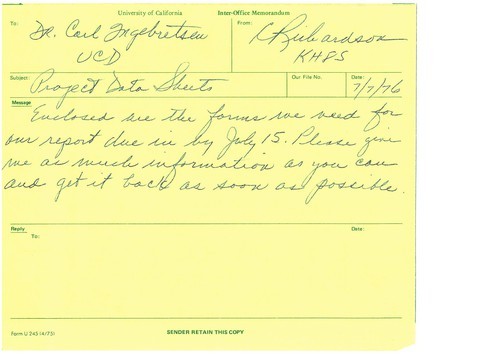 University of California Inter-Office Memorandum
To: From:
Dr. Carl Ingebretsen Richardson
UCD KHPS
Subject: Our File No. Date:
Project Data Sheets 7/7/76
Message
Enclosed are the forms we need for
our report due in by July 15. Please give
me as much information as you can
and get it back as soon as possible.
Reply
To: Date:
Form U 245 (4/75)
SENDER RETAIN THIS COPY